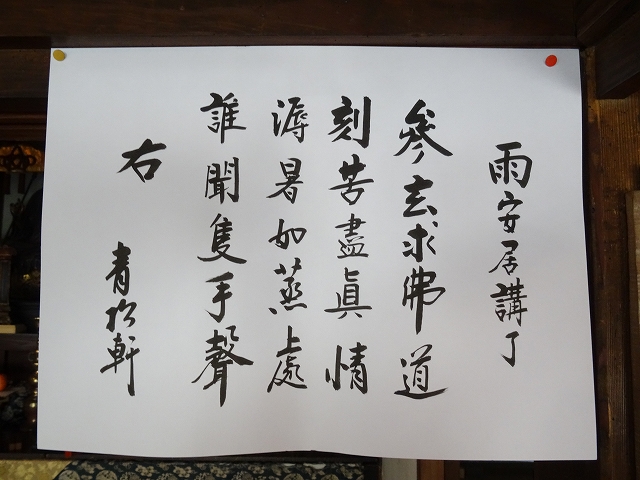 雨安居講了
參玄求佛道
刻苦盡眞情
溽暑如蒸處
誰聞隻手聲
右
青松軒